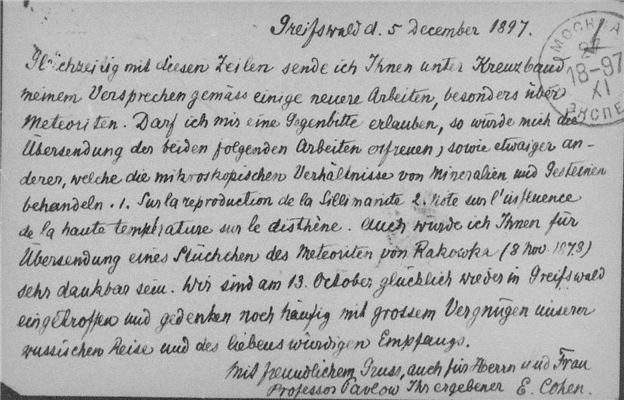 Greifswald d. 5 December 1897.
Gleichzeitig mit diesen Zeilen sende ich Ihnen unter Kreuzband
meinem Versprechen gemäss einige neuere Arbeiten, besonders über
Meteoriten. Darf ich mir eine Gegenbitte erlauben, so würde mich die
Übersendung der beiden folgenden Arbeiten erfreuen, sowie etwaiger an-
derer, welche die mikroskopischen Verhältnisse von Mineralien und Gesteinen
behandeln. 1. Sur la reproduction de la Sillimanite 2. Note sur l'influence
de la haute température sur le disthène. Auch wurde ich Ihnen für
Übersendung eines Stückchen des Meteoriten von Rakowka (8 Nov. 1878)
sehr dankbar sein. Wir sind am 13. October glücklich wieder in Greifswald
eingetroffen und gedenken noch häufig mit grossem Vergnügen unserer
russischen Reise und des liebenswürdigen Empfangs.
Mit freundlichem Gruss, auch für Herrn und Frau
Professor Pavlow Ihr ergebener E. Cohen.
МОСКВА
18-97
XI